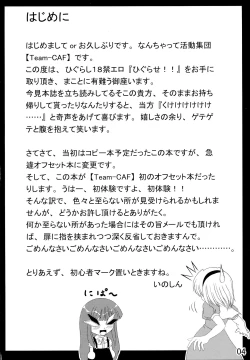 はじめに
はじめまして or お久しぶりです。なんちゃって活動集団
【Team-CAF】です。
この度は、ひぐらし１８禁エロ『ひぐらせ！！』をお手に
取り頂き、まことに有難う御座います。
今見本誌を立ち読みしてるそこの貴方、そのままお持ち
帰りして貰ったりなんたりすると、当方『くけけけけけけ
……』と奇声をあげて喜びます。嬉しさの余り、ゲテゲ
テと腹を抱えて笑います。
さてさて、当初はコピー本予定だったこの本ですが、急
遽オフセット本に変更です。
そして、この本が【Team-CAF】初のオフセット本だった
りします。うはー、初体験ですよ、初体験！！
そんな訳で、色々と至らない所が見受けられるかもしれ
ませんが、どうかお許し頂けるとありがたく。
何か至らない所があった場合にはその旨メールでも頂け
れば、扉に指を挟まれつつ深く反省しておきますんで。
ごめんなさいごめんなさいごめんなさいごめんなさい……
とりあえず、初心者マーク置いときますね。
いのしん
にぱ～
04